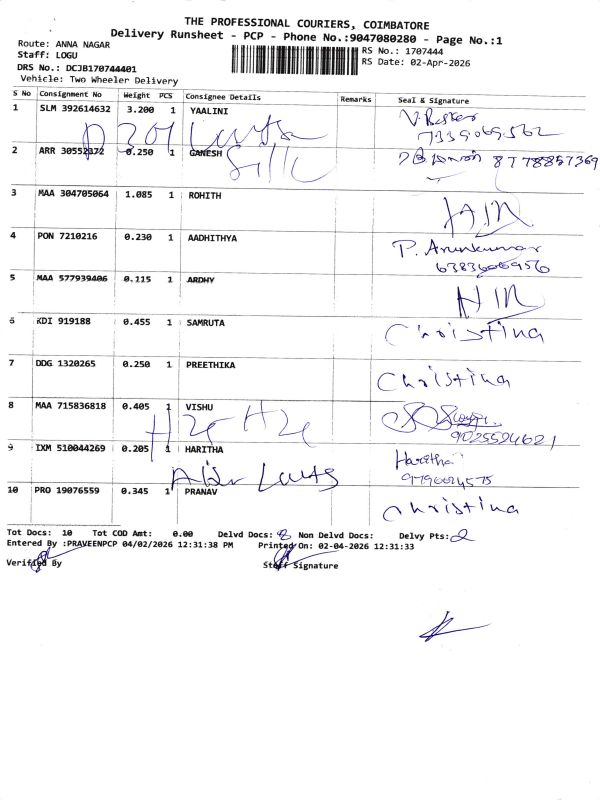 THE PROFESSIONAL COURIERS, COIMBATORE
Delivery Runsheet - PCP - Phone No.:9047080280 - Page No.:1
Route: ANNA NAGAR
Staff: LOGU
RS No.: 1707444
DRS No.: DCJB170744401
RS Date: 02-Apr-2026
Vehicle: Two Wheeler Delivery
S No Consignment No Weight PCS Consignee Details Remarks Seal & Signature
1 SLM 392614632 3.200 1 YAALINI
7339069562
2 ARR 30552372 0.250 1 GANESH 8778857369
3 MAA 304705064 1.085 1 ROHITH
4 PON 7210216 0.230 1 AADHITHYA P. Arunkumar
5 MAA 577939406 0.115 1 ARDHY
6 KDI 919188 0.455 1 SAMRUTA Christina
7 DDG 1320265 0.250 1 PREETHIKA Christina
8 MAA 715836818 0.405 1 VISHU
9025594621
9 IXM 510044269 0.205 1 HARITHA Haritha
10 PRO 19076559 0.345 1 PRANAV Christina
Tot Docs: 10 Tot COD Amt: 0.00 Delvd Docs: 8 Non Delvd Docs: Delvy Pts: 2
Entered By :PRAVEENPCP 04/02/2026 12:31:38 PM Printed On: 02-04-2026 12:31:33
Verified By Staff Signature